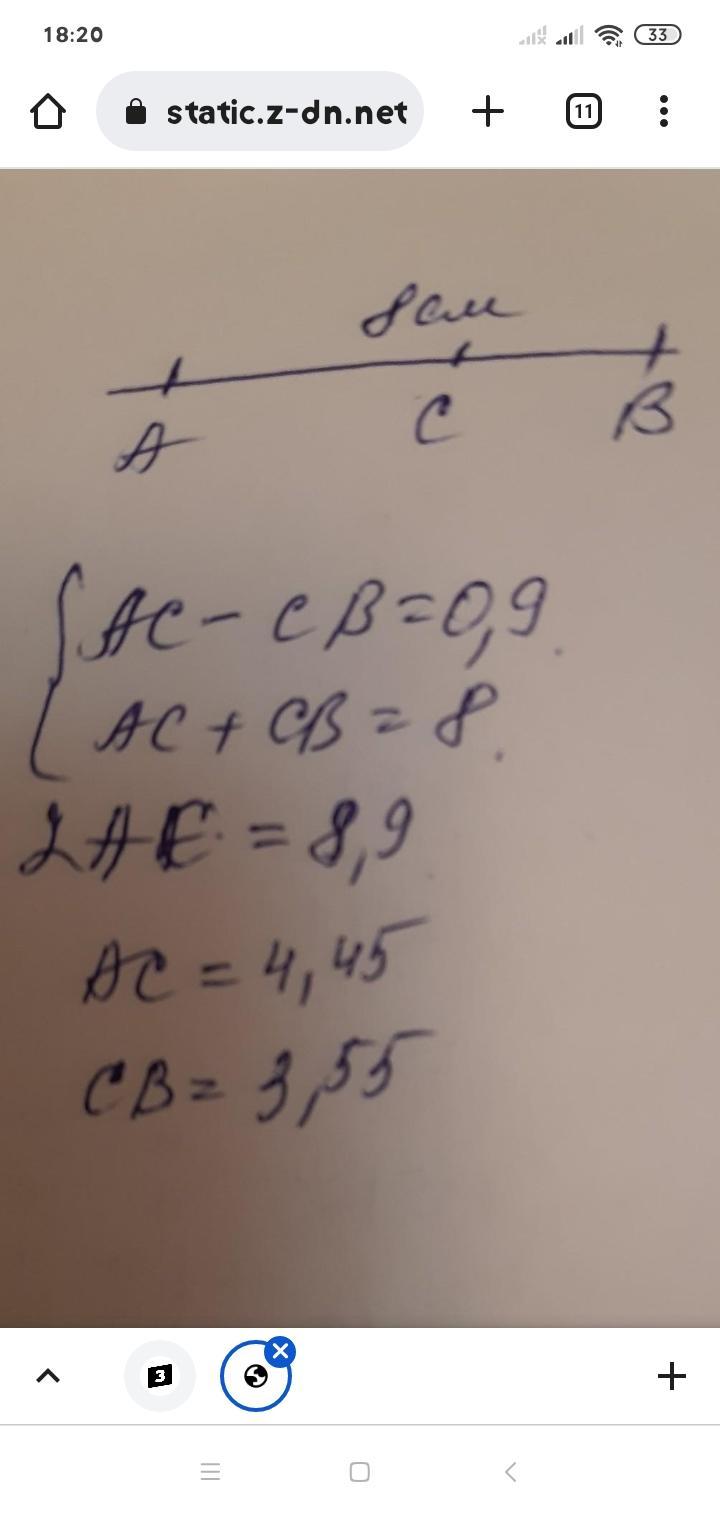 18:20
33
static.z-dn.net
11
8 см
A C B
AC - CB = 0,9
AC + CB = 8
2AC = 8,9
AC = 4,45
CB = 3,55
3